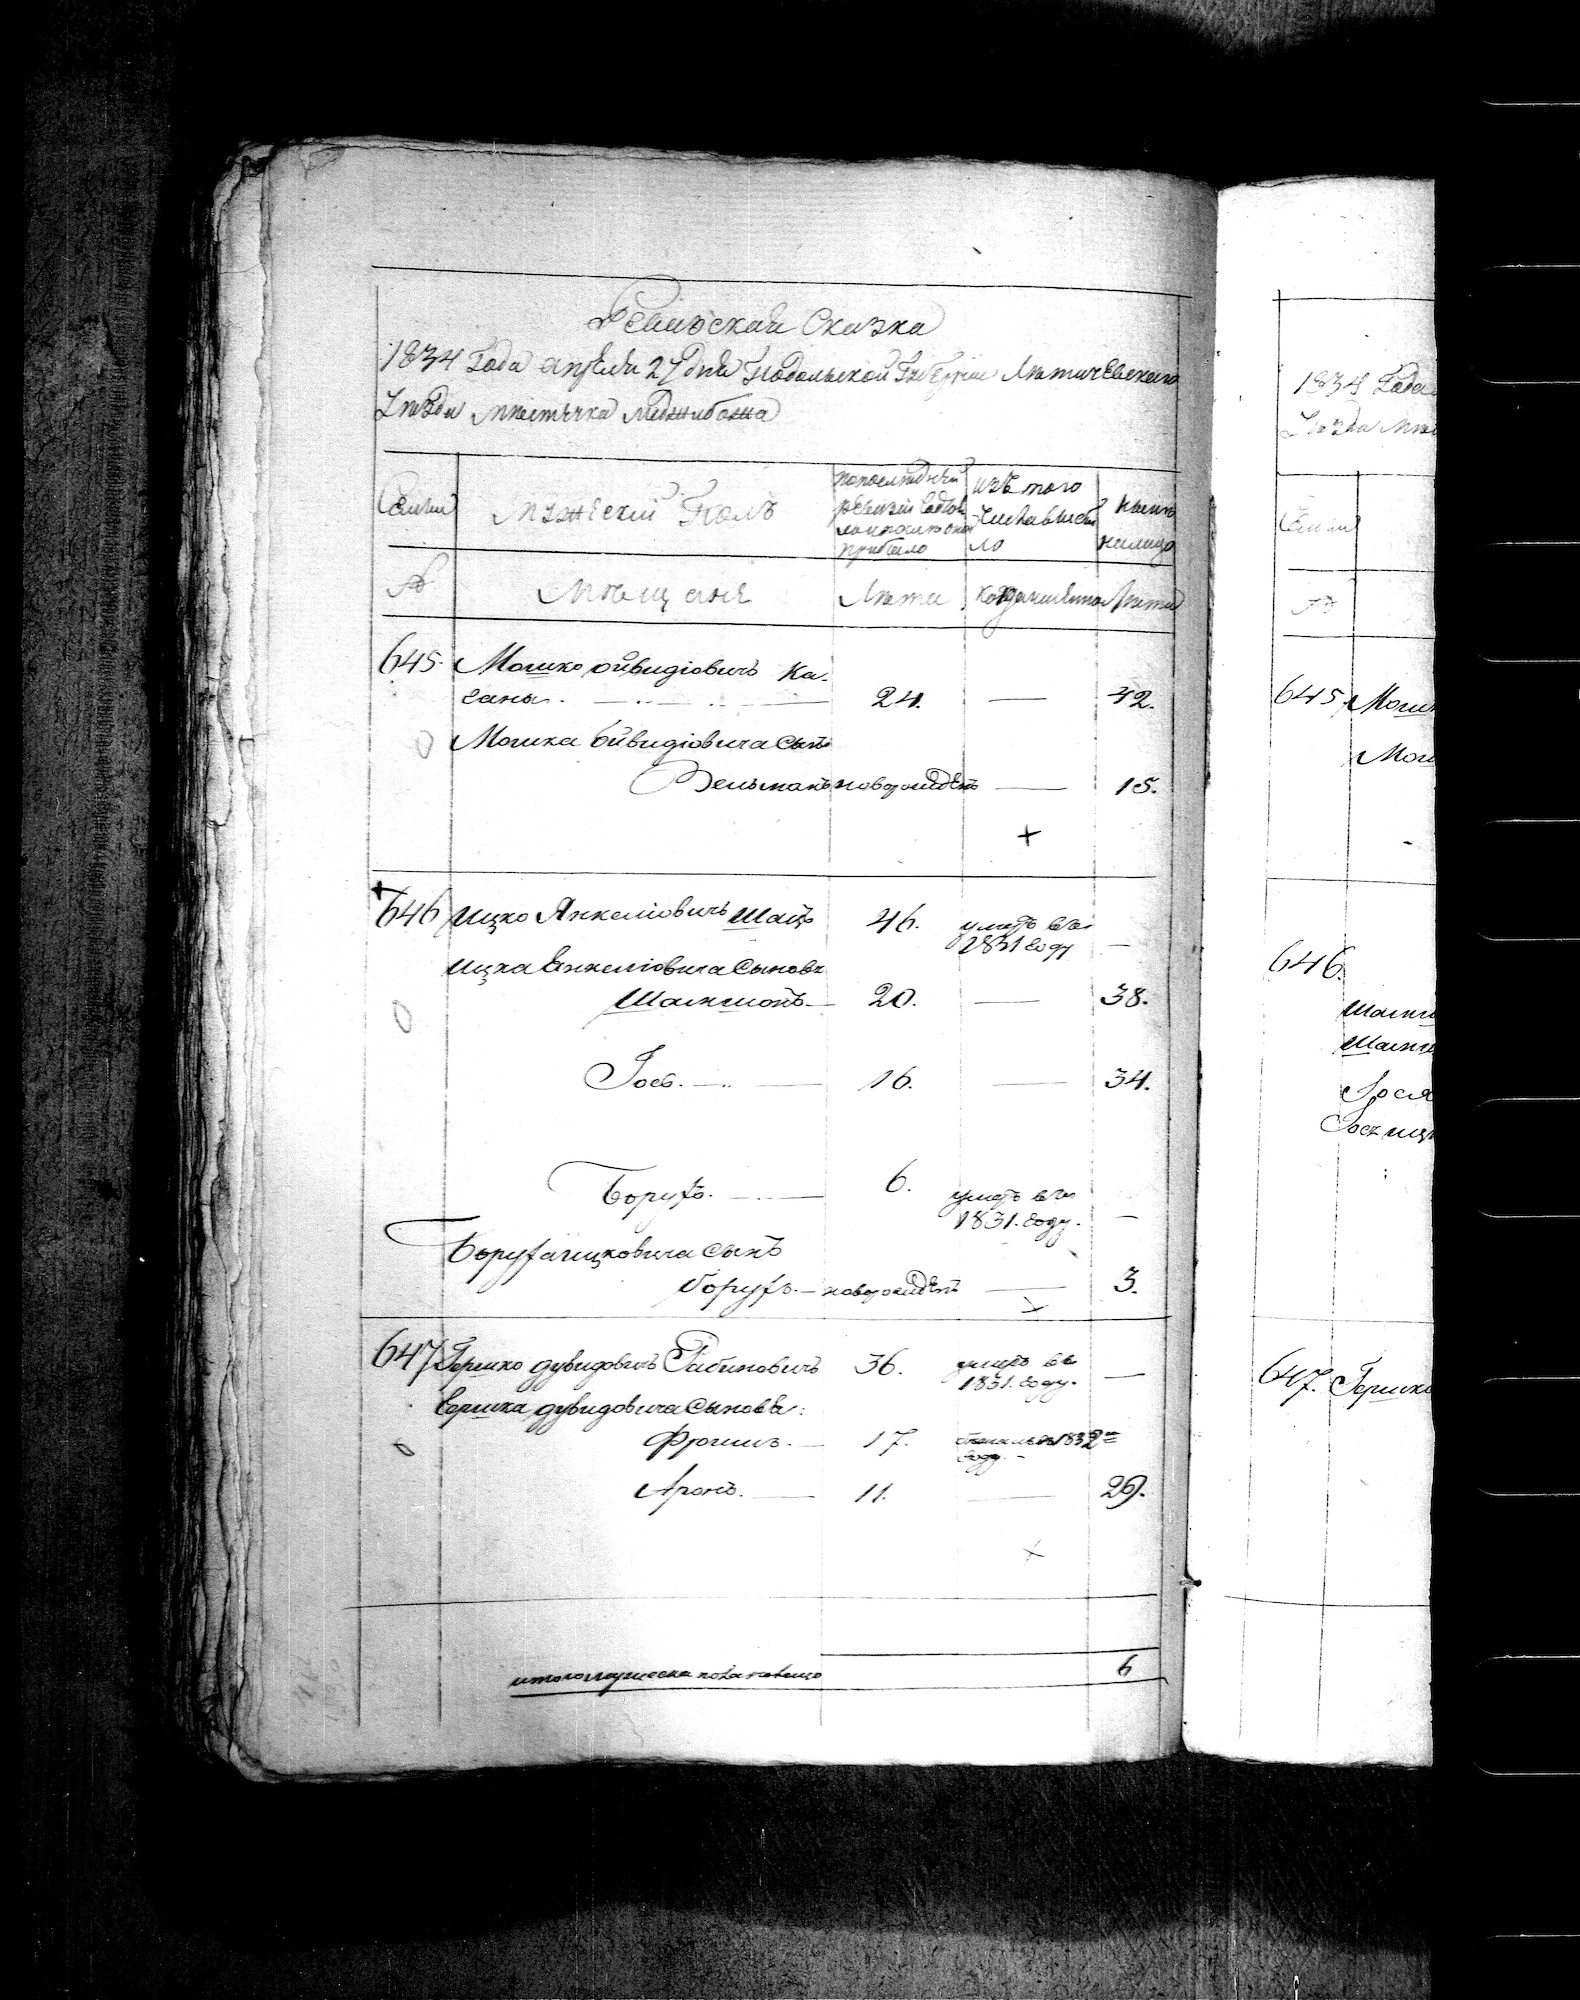 Ревизская Сказка
1834 Года апреля 27 дня Подольской Губернии Летичевского
Уезда местечка Меджибожа
Семьи
Мужескiй Полъ
по последней ревизiи состояло и после оной прибыло
изъ того числа выбыло
ныне налицо
№
Мещане
Лета
когда именно
Лета
645. Мошко Ойвидiовичъ Ка-
санъ. 24. — 42.
Мошка Ойвидiовича сынъ
Зельманъ новорожденъ — 15.
+
646 Ицко Янкелiовичъ Шацъ 46. умеръ въ
1831 году —
Ицка Янкелiовича сыновья
Шамшонъ — 20. — 38.
Iось. — 16. — 34.
Борухъ. — 6. умеръ въ
1831. году. —
Боруха Ицковича сынъ
Борухъ. — новорожденъ — 3.
647 Гершко Дувидовичъ Рабиновичъ 36. умеръ въ
1831. году. —
Гершка Дувидовича сыновья:
Фроимъ. — 17. 1832
году. —
Аронъ. — 11. — 29.
итого мужеска пола налицо 6
1834 Года
Уезда Мес
Семьи
№
645. Мошк
Мош
646.
Шамш
Шамш
Iося
Iося Иц
647. Гершко